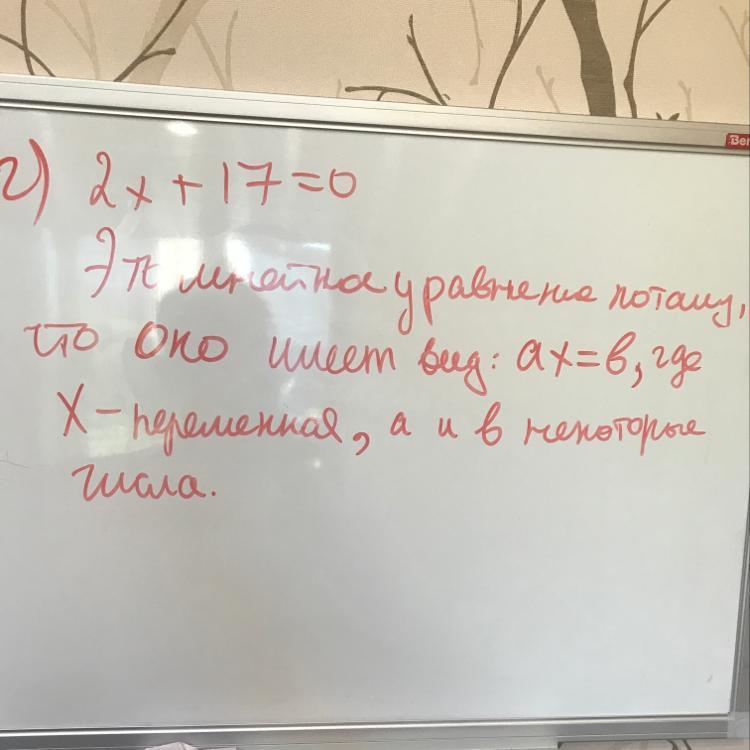 г) 2x + 17 = 0
Это линейное уравнение потому,
что оно имеет вид: ax = b, где
x – переменная, a и b некоторые
числа.
Ben